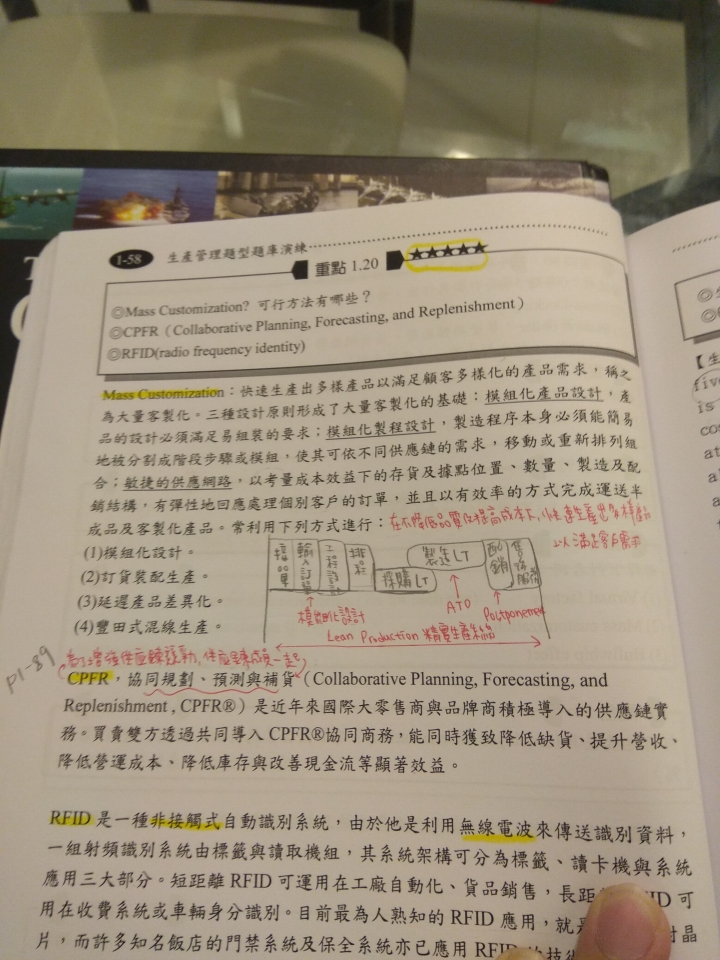 1-58 生產管理題型題庫演練
重點 1.20 ★★★★★
◎Mass Customization? 可行方法有哪些？
◎CPFR（Collaborative Planning, Forecasting, and Replenishment）
◎RFID(radio frequency identity)
Mass Customization：快速生產出多樣產品以滿足顧客多樣化的產品需求，稱之
為大量客製化。三種設計原則形成了大量客製化的基礎：模組化產品設計，產
品的設計必須滿足易組裝的要求；模組化製程設計，製造程序本身必須能簡易
地被分割成階段步驟或模組，使其可依不同供應鏈的需求，移動或重新排列組
合；敏捷的供應網路，以考量成本效益下的存貨及據點位置、數量、製造及配
銷結構，有彈性地回應處理個別客戶的訂單，並且以有效率的方式完成運送半
成品及客製化產品。常利用下列方式進行：
在不降低品質及提高成本下,快速生產出多樣產品
以滿足客戶需求
(1)模組化設計。
(2)訂貨裝配生產。
(3)延遲產品差異化。
(4)豐田式混線生產。
接單
輸入訂單
工程設計
排程
採購LT
製造LT
配銷
售後服務
模組化設計
ATO
Postponement
Lean Production 精實生產系統
P1-89
CPFR，協同規劃、預測與補貨（Collaborative Planning, Forecasting, and
Replenishment , CPFR®）是近年來國際大零售商與品牌商積極導入的供應鏈實
務。買賣雙方透過共同導入 CPFR®協同商務，能同時獲致降低缺貨、提升營收、
降低營運成本、降低庫存與改善現金流等顯著效益。
RFID 是一種非接觸式自動識別系統，由於他是利用無線電波來傳送識別資料，
一組射頻識別系統由標籤與讀取機組，其系統架構可分為標籤、讀卡機與系統
應用三大部分。短距離 RFID 可運用在工廠自動化、貨品銷售，長距 ID 可
用在收費系統或車輛身分識別。目前最為人熟知的 RFID 應用，就是 晶
片，而許多知名飯店的門禁系統及保全系統亦已應用 RFID 的技
【生
five
is
co
at
al
a